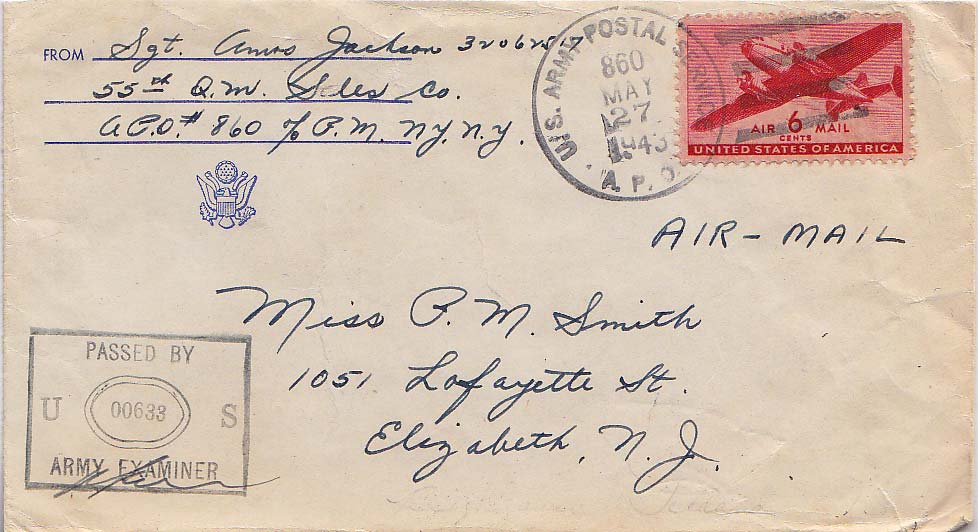 FROM Sgt. Amos Jackson
55th Q.M. Sales Co.
A.P.O.# 860 c/o P.M. N.Y. N.Y.
U.S. ARMY POSTAL SERVICE
860
MAY
27
1943
A. P. O.
AIR 6 MAIL
CENTS
UNITED STATES OF AMERICA
AIR-MAIL
Miss P. M. Smith
1051 Lafayette St.
Elizabeth, N. J.
PASSED BY
U 00633 S
ARMY EXAMINER